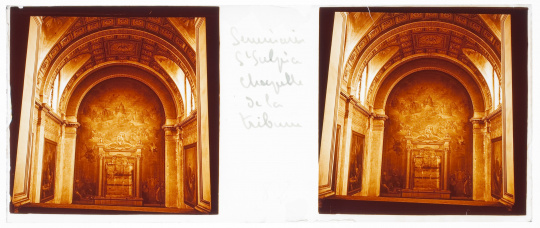 Seminaire
St Sulpice
Chapelle
de la
tribune